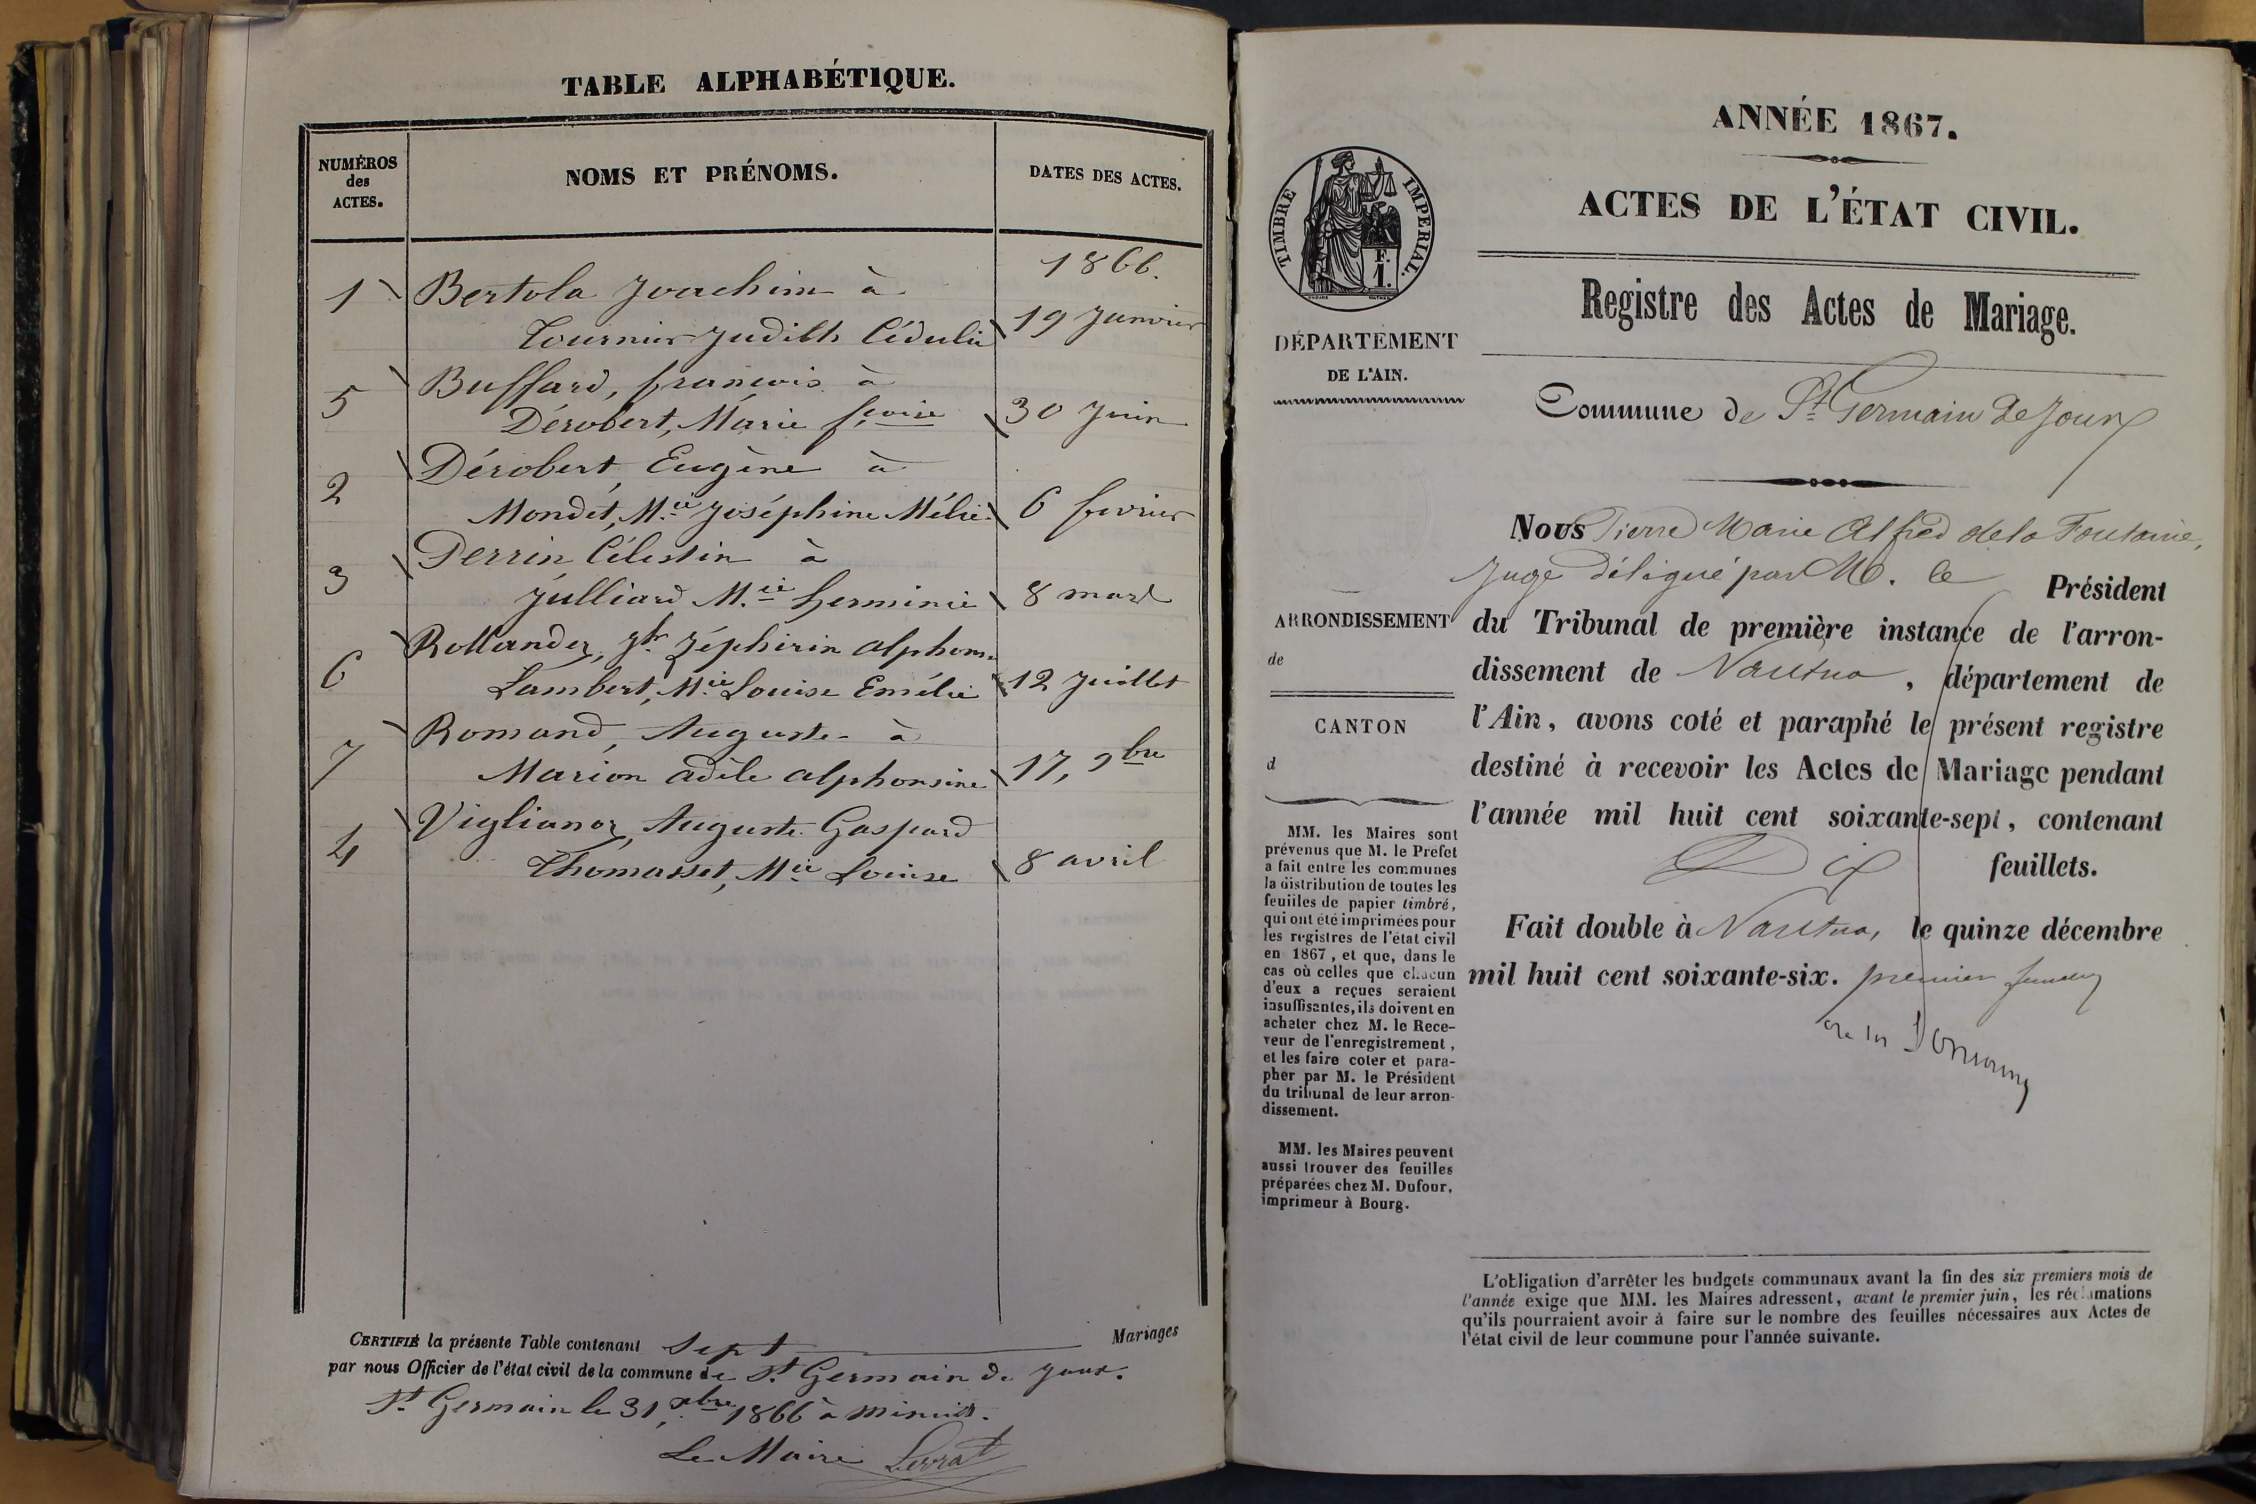 TABLE ALPHABÉTIQUE.
NUMÉROS
des
ACTES.
NOMS ET PRÉNOMS.
DATES DES ACTES.
1866.
1 Bertola Joachim à
Tournier Judith Cédulie 19 Janvier
5 Buffard, françois à
Dérobert, Marie f.çoise 30 Juin
2 Dérobert, Eugène à
Mondet, M.ie Joséphine Mélie 6 fevrier
3 Perrin Célestin à
Julliard M.ie herminie 8 mars
6 Rollandez, Jh. Zéphirin alphons
Lambert, M.ie Louise Emélie 12 Juillet
7 Romand, Auguste à
Marion adèle alphonsine 17, 9bre
4 Viglianoz, Auguste Gaspard
Thomasset, M.ie Louise 8 avril
CERTIFIÉ la présente Table contenant sept Mariages
par nous Officier de l'état civil de la commune de St. Germain de Joux.
St. Germain le 31, xbre 1866 à minuit.
Le Maire Serrat
ANNÉE 1867.
ACTES DE L'ÉTAT CIVIL.
Registre des Actes de Mariage.
TIMBRE IMPERIAL.
F.
1.
DÉPARTEMENT
DE L'AIN.
Commune de St. Germain de Joux
ARRONDISSEMENT
de
CANTON
d
MM. les Maires sont
prévenus que M. le Prefet
a fait entre les communes
la distribution de toutes les
feuilles de papier timbré,
qui ont été imprimées pour
les registres de l'état civil
en 1867, et que, dans le
cas où celles que chacun
d'eux a reçues seraient
insuffisantes, ils doivent en
acheter chez M. le Rece-
veur de l'enregistrement,
et les faire coter et para-
pher par M. le Président
du tribunal de leur arron-
dissement.
MM. les Maires peuvent
aussi trouver des feuilles
préparées chez M. Dufour,
imprimeur à Bourg.
Nous Pierre Marie Alfred de la Fontaine,
Juge délégué par M. le Président
du Tribunal de première instance de l'arron-
dissement de Nantua, département de
l'Ain, avons coté et paraphé le présent registre
destiné à recevoir les Actes de Mariage pendant
l'année mil huit cent soixante-sept, contenant
Dix feuillets.
Fait double à Nantua, le quinze décembre
mil huit cent soixante-six. premier
L'obligation d'arrêter les budgets communaux avant la fin des six premiers mois de
l'année exige que MM. les Maires adressent, avant le premier juin, les réclamations
qu'ils pourraient avoir à faire sur le nombre des feuilles nécessaires aux Actes de
l'état civil de leur commune pour l'année suivante.